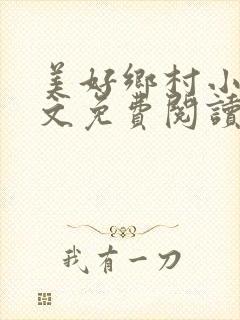 美好鄉村小
文免費閱讀
我有一刀